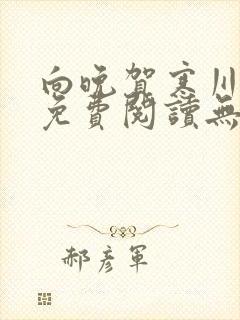 向晚賀寒川
免費閱讀無
郝彥軍